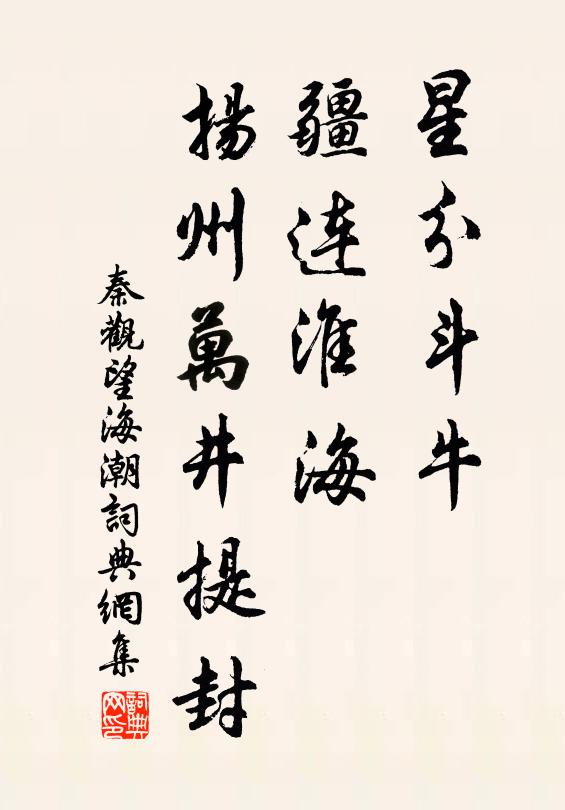 星分斗牛
疆連淮海
揚州萬井提封
秦觀望海潮詞典網集
詞典網印